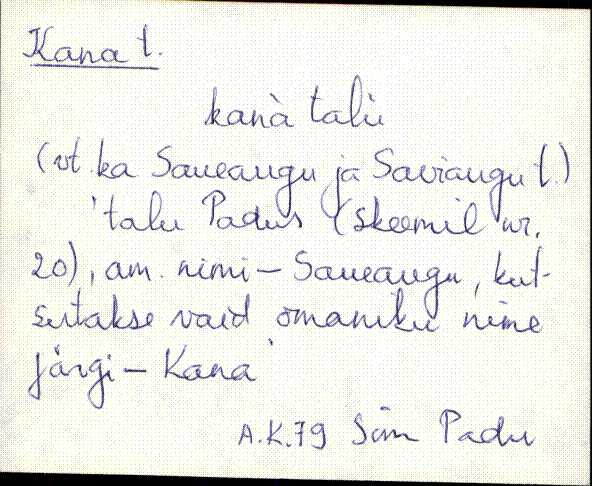 Kana t.
kanà talù
(vt. ka Saueaugu ja Saviaugu t.)
'talu Padus (skeemil nr.
20), am. nimi - Saueaugu, kut-
sutakse vaid omaniku nime
järgi - Kana'
A.K.79 Sim Padu